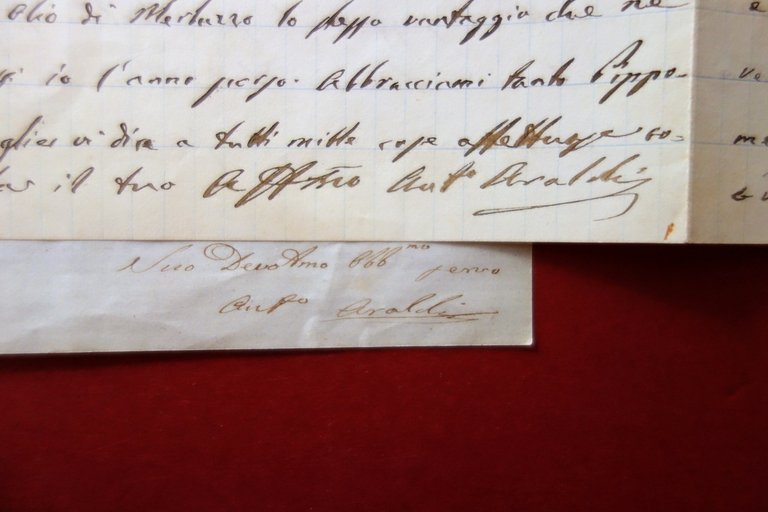 olio di Merluzzo lo stesso vantaggio che ne e
io l'anno perso. Abbracciami tanto Pippo- ve
glier vi dica a tutti mille cose affettuose co= me
il tuo Affmo Anto Araldi
Suo Devotmo Obbmo servo
Anto Araldi